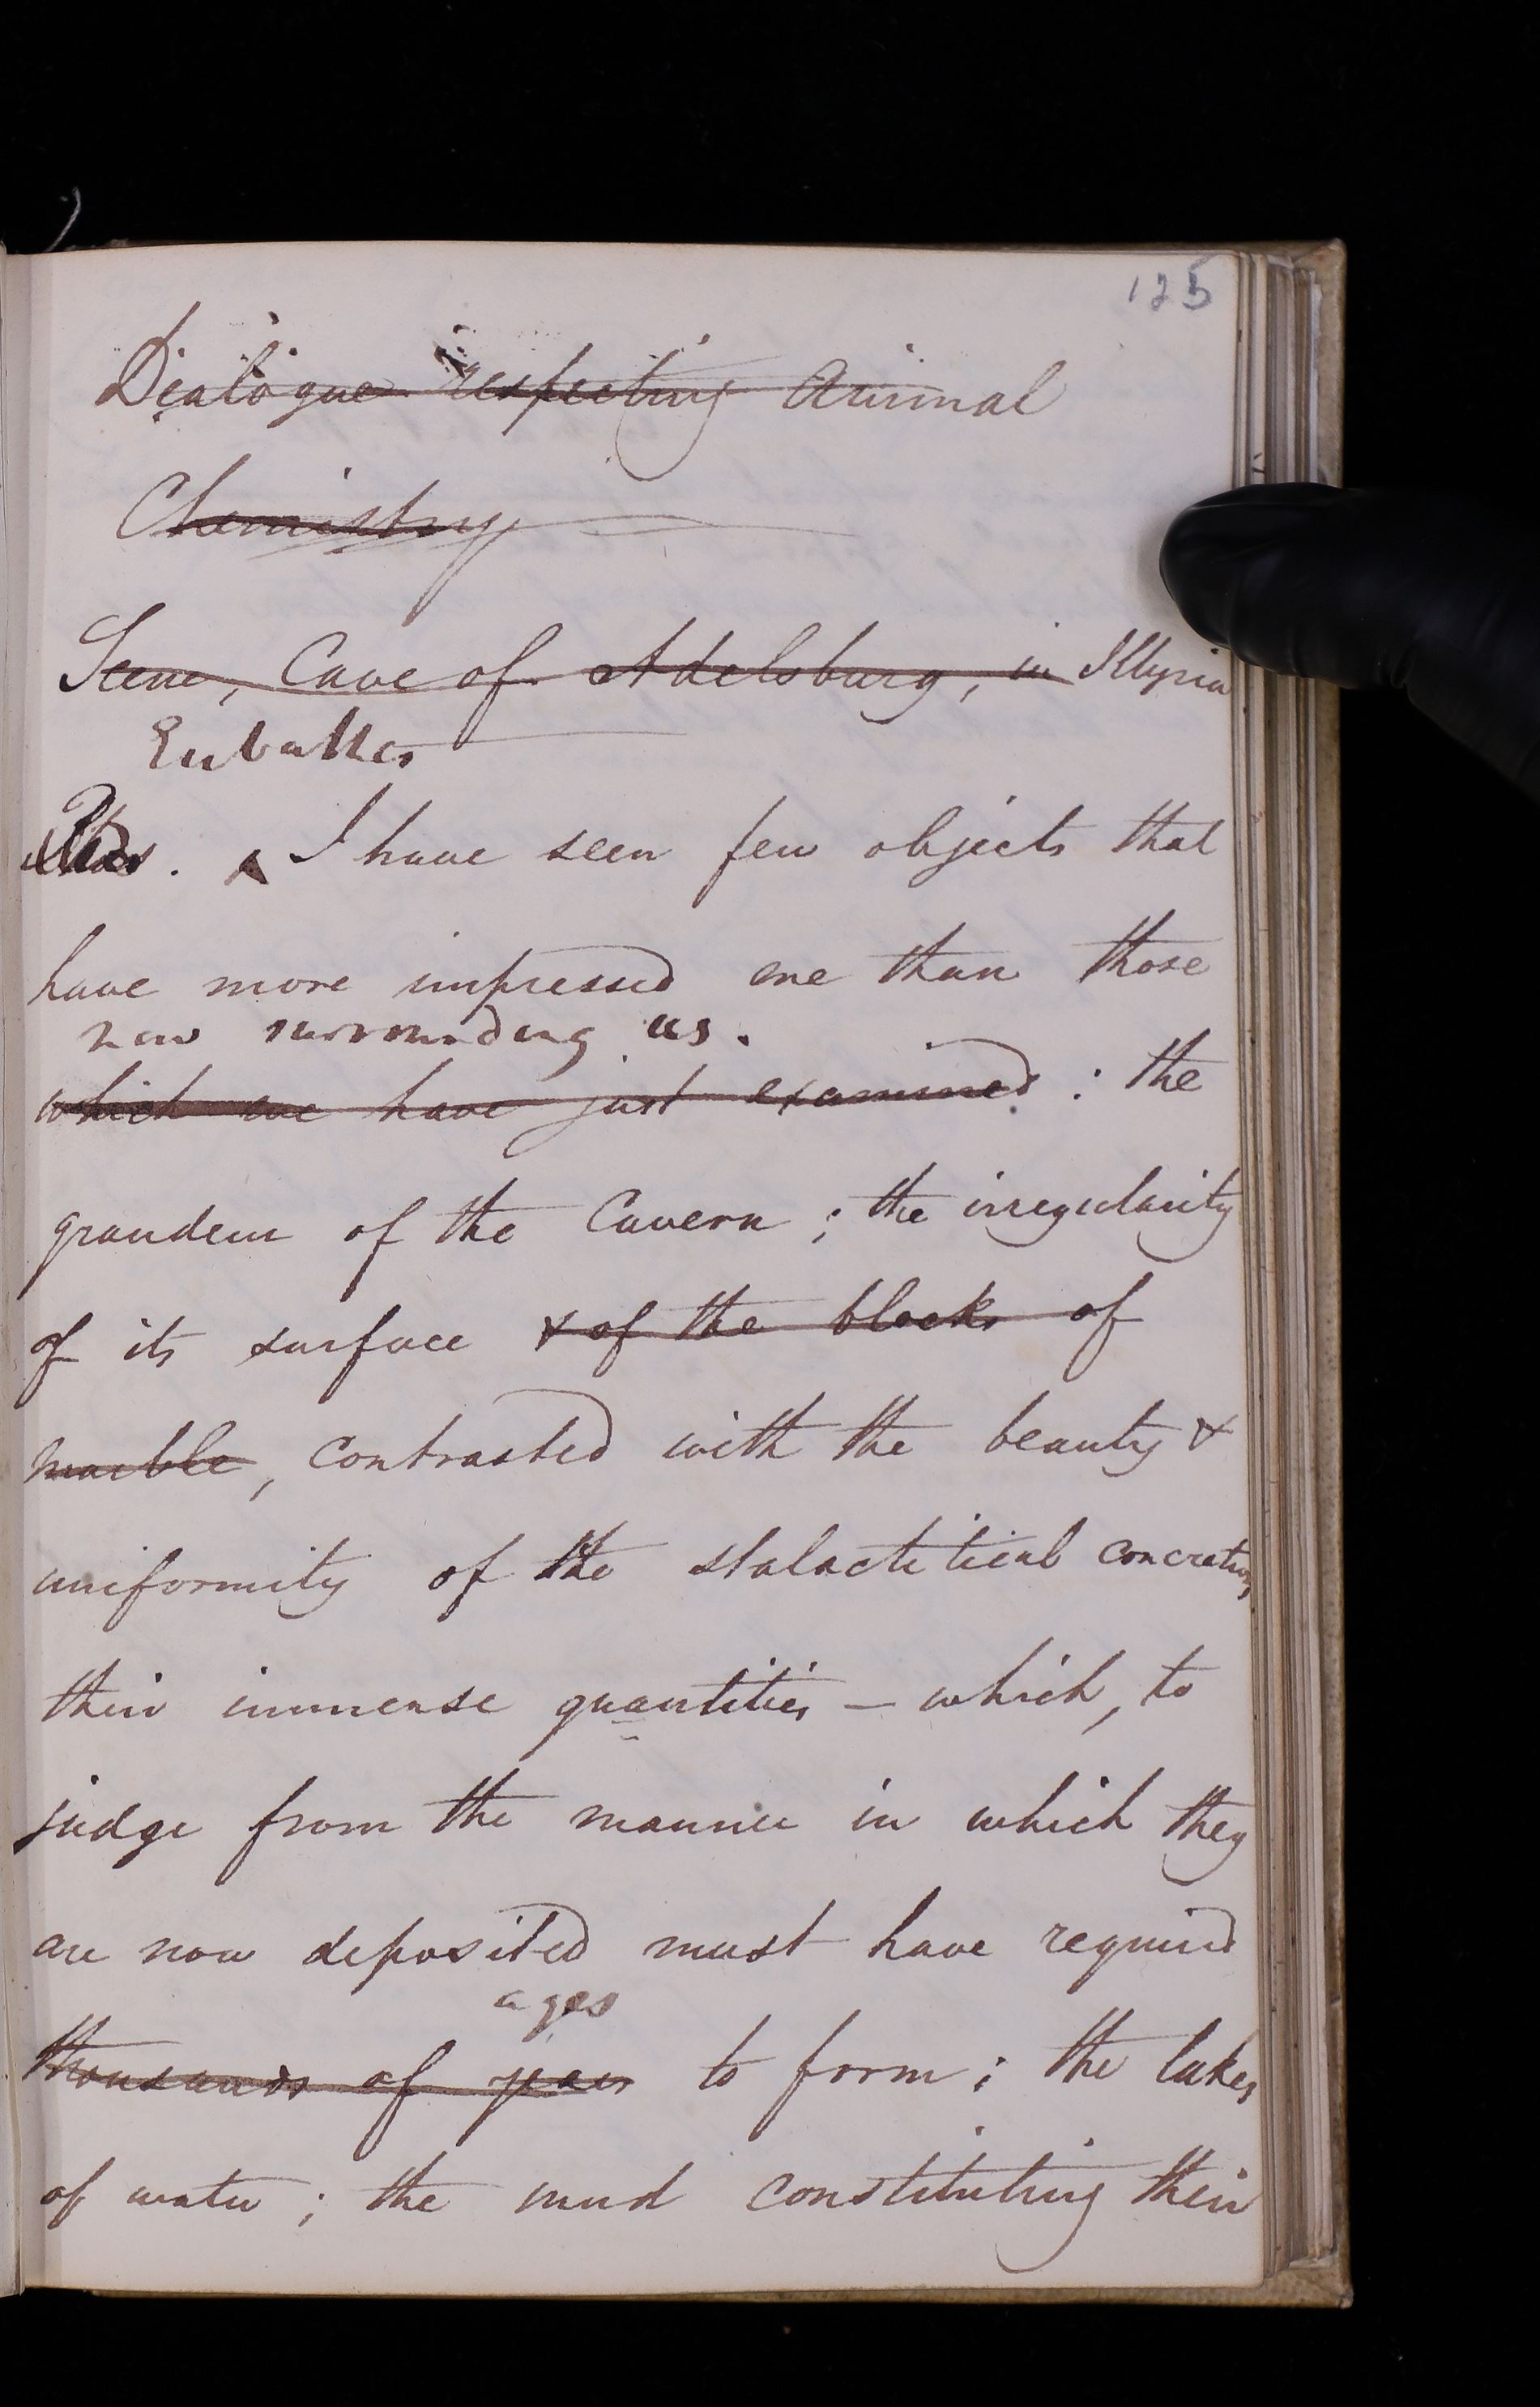 125
Dialogue respecting Animal
Chemistry
Scene, Cave of Adelsburg, in Illyria
Eubathes
I have seen few objects that
have more impressed me than those
now surrounding us.
which we have just examined : the
grandeur of the Cavern ; the irregularity
of its surface & of the blocks of
marble, contrasted with the beauty &
uniformity of the stalactitical concretions
their immense quantities – which, to
judge from the manner in which they
are now deposited must have required
ages
thousands of years to form ; the lakes
of water ; the mud constituting their